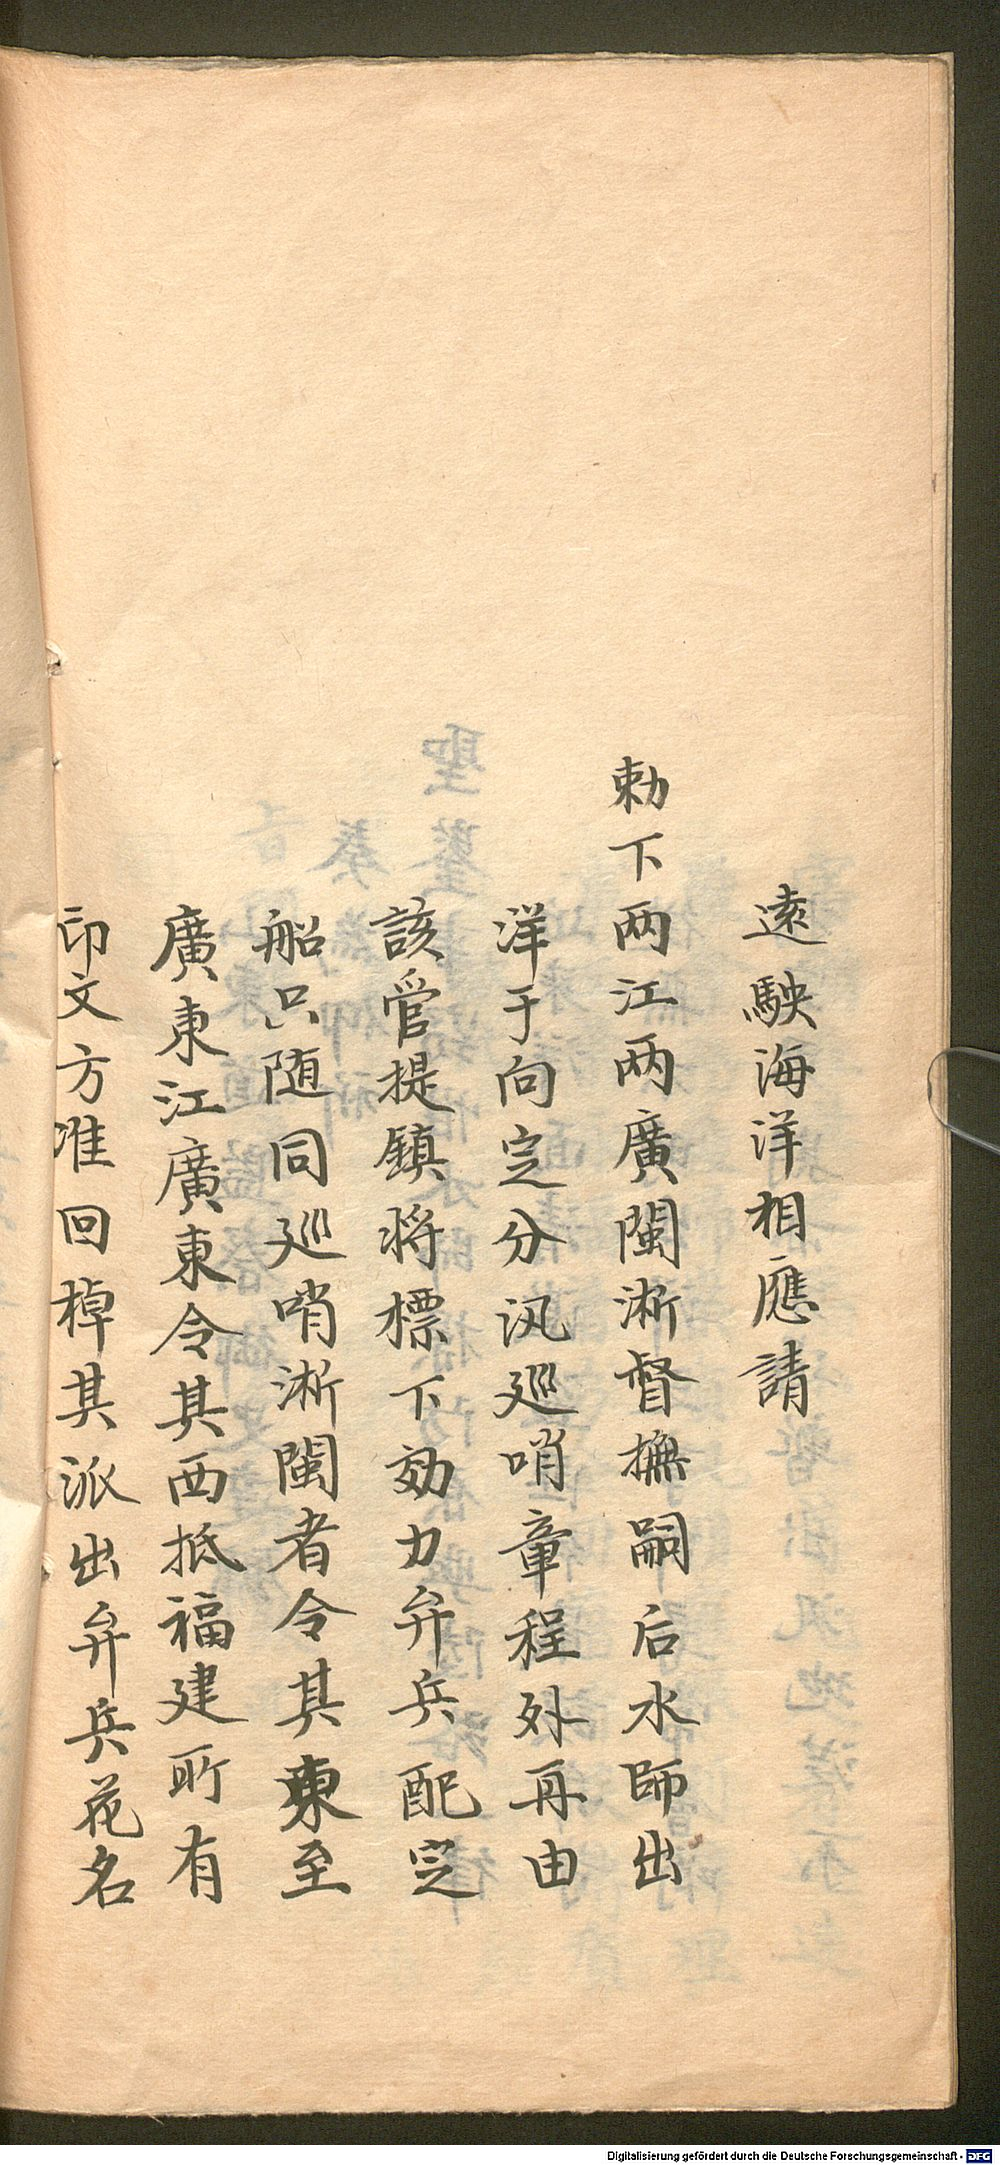 遠駛海洋相應請
勅下两江两廣閩淅督撫嗣后水師出
洋于向定分汛巡哨章程外再由
該管提鎮将標下効力弁兵配定
船只随同巡哨淅閩者令其東至
廣東江廣東令其西抵福建所有
印文方准回棹其派出弁兵花名
Digitalisierung gefördert durch die Deutsche Forschungsgemeinschaft - DFG